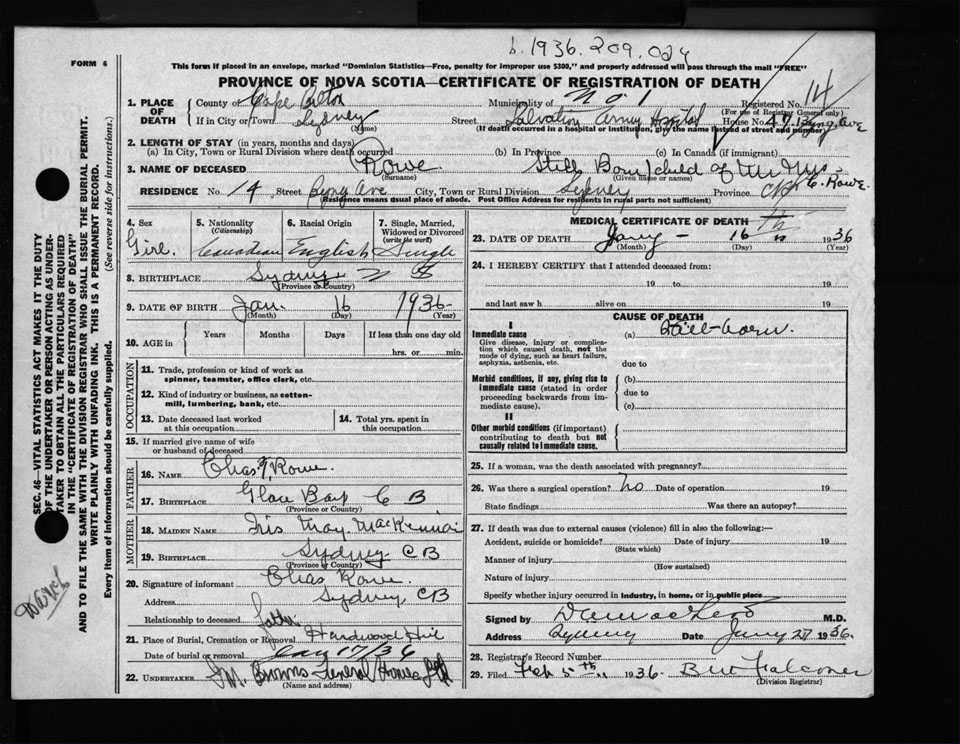 b. 1936. 209. 024
FORM 6
This form if placed in an envelope, marked "Dominion Statistics—Free, penalty for improper use $300," and properly addressed will pass through the mail "FREE"
PROVINCE OF NOVA SCOTIA—CERTIFICATE OF REGISTRATION OF DEATH
1. PLACE OF DEATH
County of Cape Breton Municipality of No 1 Registered No. 14
(For use of Registrar General only)
If in City or Town Sydney Street Salvation Army Hospital House No.
(Name) (If death occurred in a hospital or institution, give the name instead of street and number)
2. LENGTH OF STAY (in years, months and days)
(a) In City, Town or Rural Division where death occurred (b) In Province (c) In Canada (if immigrant)
3. NAME OF DECEASED Rowe Still Born child of Mr Mrs C. Rowe.
(Surname) (Given name or names)
RESIDENCE No. 14 Street Byng Ave City, Town or Rural Division Sydney Province
(Residence means usual place of abode. Post Office Address for residents in rural parts not sufficient)
4. Sex
Girl.
5. Nationality
(Citizenship)
Canadian
6. Racial Origin
English
7. Single, Married, Widowed or Divorced
(write the word)
Single
8. BIRTHPLACE Sydney N S
(Province or Country)
9. DATE OF BIRTH Jan. 16 1936
(Month) (Day) (Year)
10. AGE in Years Months Days If less than one day old
hrs. or min.
OCCUPATION
11. Trade, profession or kind of work as spinner, teamster, office clerk, etc.
12. Kind of industry or business, as cotton-mill, lumbering, bank, etc.
13. Date deceased last worked at this occupation
14. Total yrs. spent in this occupation
15. If married give name of wife or husband of deceased
FATHER
16. NAME Chas. Rowe.
17. BIRTHPLACE Glace Bay C B
(Province or Country)
MOTHER
18. MAIDEN NAME Iris May
19. BIRTHPLACE Sydney C B
(Province or Country)
20. Signature of informant Chas Rowe.
Address Sydney CB
Relationship to deceased father
21. Place of Burial, Cremation or Removal Hardwood Hill
Date of burial or removal Jan 17/36
22. UNDERTAKER Funeral Home
(Name and address)
MEDICAL CERTIFICATE OF DEATH
23. DATE OF DEATH Jany - 16 th 1936
(Month) (Day) (Year)
24. I HEREBY CERTIFY that I attended deceased from:
19 to 19
and last saw h alive on 19
CAUSE OF DEATH
I
Immediate cause
Give disease, injury or complication which caused death, not the mode of dying, such as heart failure, asphyxia, asthenia, etc.
(a) Still-born.
due to
Morbid conditions, if any, giving rise to immediate cause (stated in order proceeding backwards from immediate cause).
(b)
due to
(c)
II
Other morbid conditions (if important) contributing to death but not causally related to immediate cause.
25. If a woman, was the death associated with pregnancy?
26. Was there a surgical operation? no Date of operation 19
State findings Was there an autopsy?
27. If death was due to external causes (violence) fill in also the following:—
Accident, suicide or homicide? Date of injury 19
(State which)
Manner of injury
(How sustained)
Nature of injury
Specify whether injury occurred in industry, in home, or in public place
Signed by M.D.
Address Sydney Date Jany 27 1936.
28. Registrar's Record Number
29. Filed Feb 5th 1936
(Division Registrar)
SEC. 46—VITAL STATISTICS ACT MAKES IT THE DUTY
OF THE UNDERTAKER OR PERSON ACTING AS UNDER-
TAKER TO OBTAIN ALL THE PARTICULARS REQUIRED
IN THE "CERTIFICATE OF REGISTRATION OF DEATH"
AND TO FILE THE SAME WITH THE DIVISION REGISTRAR WHO SHALL ISSUE THE BURIAL PERMIT.
WRITE PLAINLY WITH UNFADING INK. THIS IS A PERMANENT RECORD.
Every item of information should be carefully supplied. (See reverse side for instructions.)